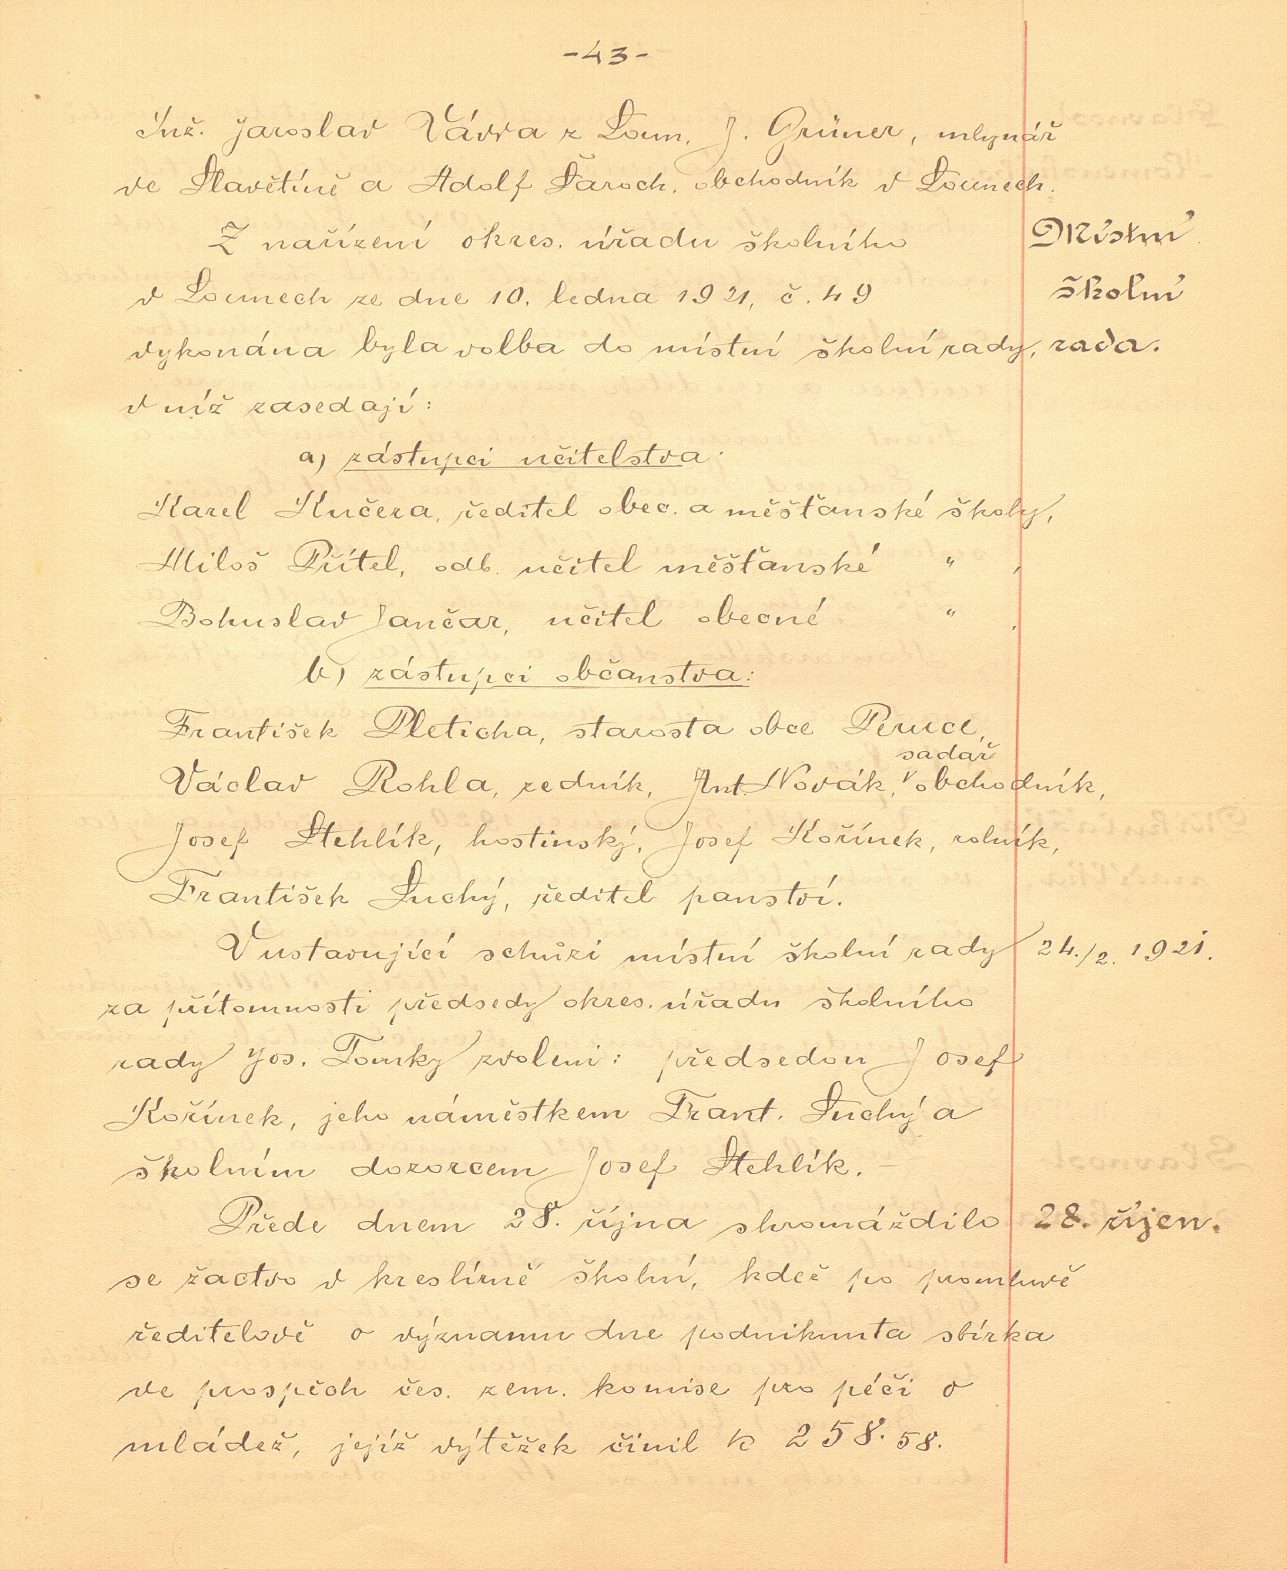 -43-
Inž. Jaroslav Vávra z Loun, J. Grüner, mlynář
ve Slavětíně a Adolf Šaroch, obchodník v Lounech.
Z nařízení okres. úřadu školního
Místní
v Lounech ze dne 10. ledna 1921, č. 49
školní
vykonána byla volba do místní školní rady,
rada.
v níž zasedají:
a) zástupci učitelstva:
Karel Kučera, ředitel obec. a měšťanské školy,
Miloš Přítel, odb. učitel měšťanské " ,
Bohuslav Jančar, učitel obecné " ,
b) zástupci občanstva:
František Pleticha, starosta obce Peruce,
sadař
Václav Rohla, zedník, Ant. Novák, obchodník,
Josef Stehlík, hostinský, Josef Kořínek, rolník,
František Suchý, ředitel panství.
V ustavující schůzi místní školní rady
24./2. 1921.
za přítomnosti předsedy okres. úřadu školního
rady Jos. Tomky zvoleni: předsedou Josef
Kořínek, jeho náměstkem Frant. Suchý a
školním dozorcem Josef Stehlík. –
Přede dnem 28. října shromáždilo
28. říjen.
se žactvo v kreslírně školní, kdež po promluvě
ředitelově o významu dne podniknuta sbírka
ve prospěch čes. zem. komise pro péči o
mládež, jejíž výtěžek činil K 258.58.